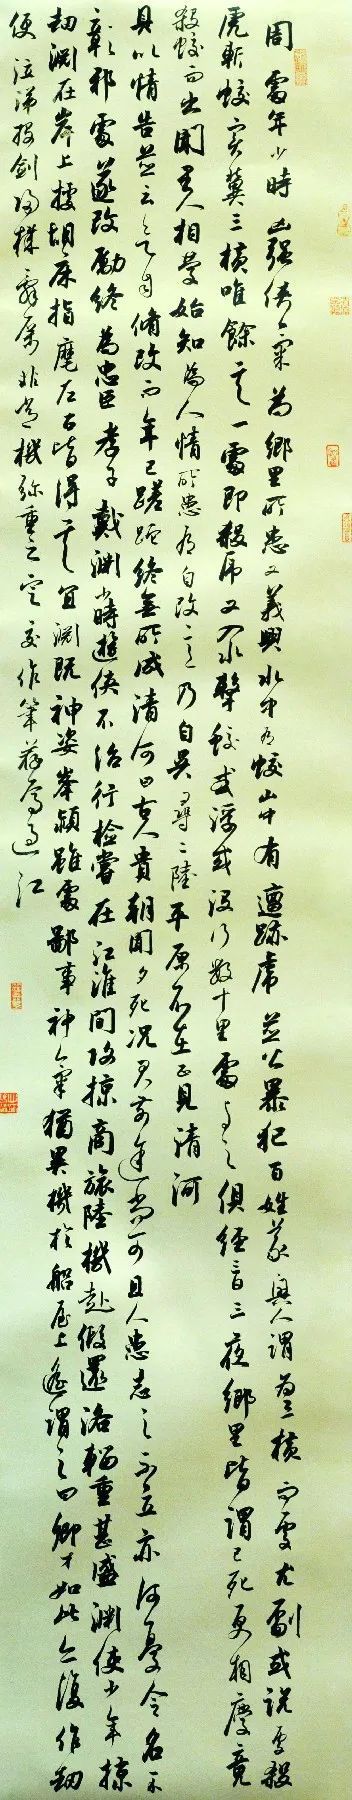 周處年少時凶強俠氣為鄉里所患又義興水中有蛟山中有邅跡虎並皆暴犯百姓義興人謂為三橫而處尤劇或說處殺
虎斬蛟實冀三橫唯餘其一處即殺虎又入水擊蛟蛟或浮或沒行數十里處與之俱經三日三夜鄉里皆謂已死更相慶竟
殺蛟而出聞里人相慶始知為人情所患有自改意乃自吳尋二陸平原不在正見清河
具以情告並云欲自修改而年已蹉跎終無所成清河曰古人貴朝聞夕死況君前途尚可且人患志之不立亦何憂令名不
彰邪處遂改勵終為忠臣孝子戴淵少時遊俠不治行檢嘗在江淮間攻掠商旅陸機赴假還洛輜重甚盛淵使少年掠
劫淵在岸上據胡床指麾左右皆得其宜淵既神姿峯穎雖處鄙事神氣猶異機於船屋上遙謂之曰卿才如此亦復作劫
便泣涕投劍歸機辭厲非常機彌重之定交作筆薦焉過江